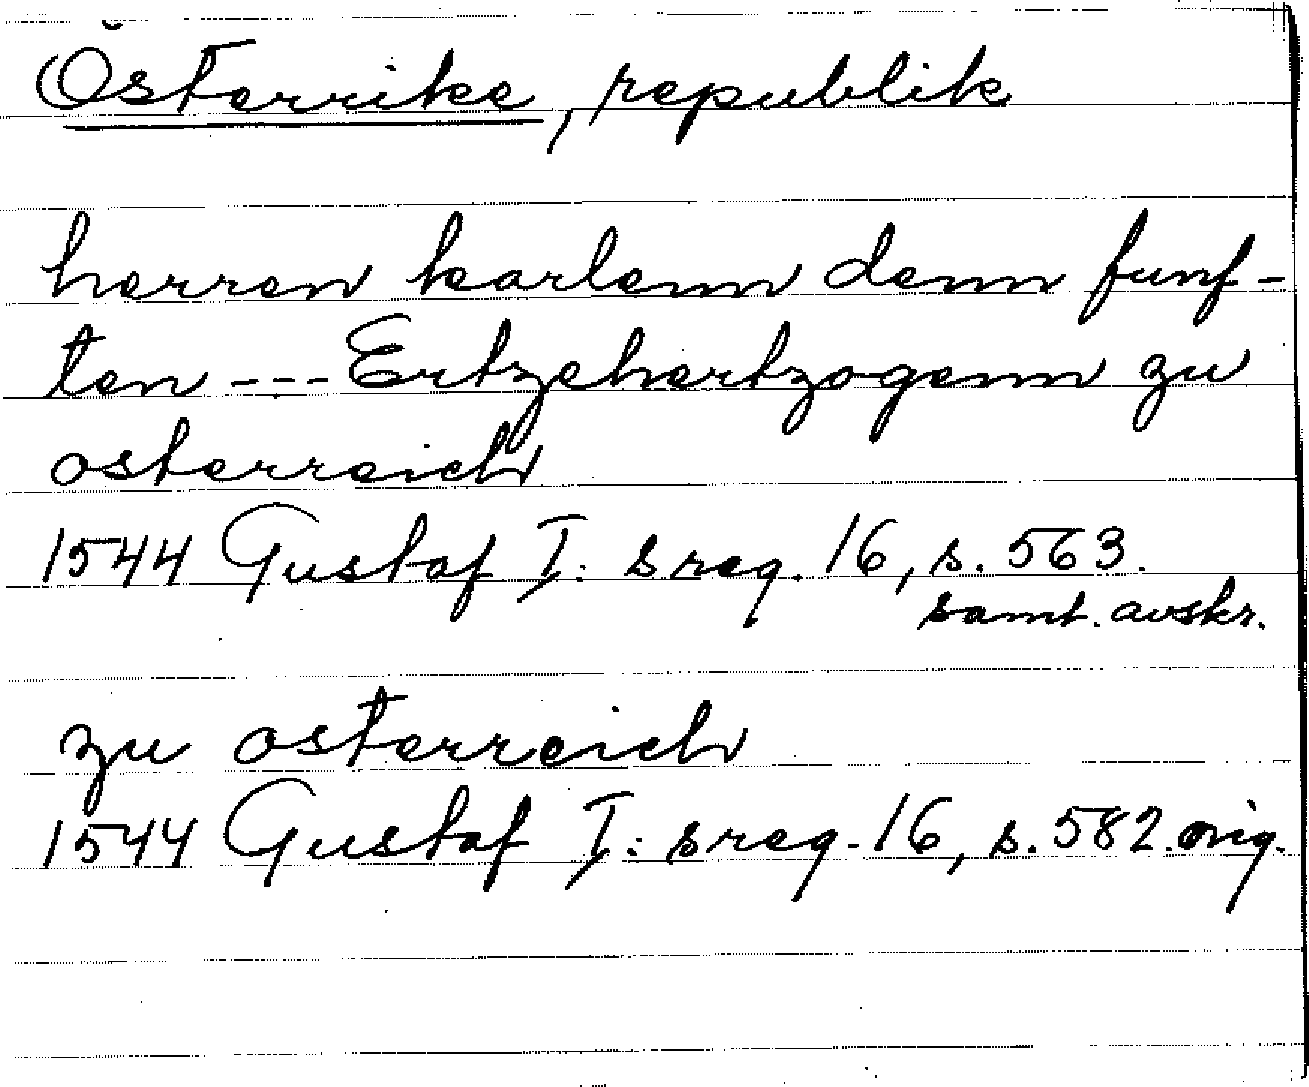 Österrike, republik
herren karlenn denn funf-
ten --- Ertzehertzogenn zu
osterreich
1544 Gustaf I: s reg. 16, s. 563.
samt. avskr.
zu osterreich
1544 Gustaf I: s reg. 16, s. 582. orig.